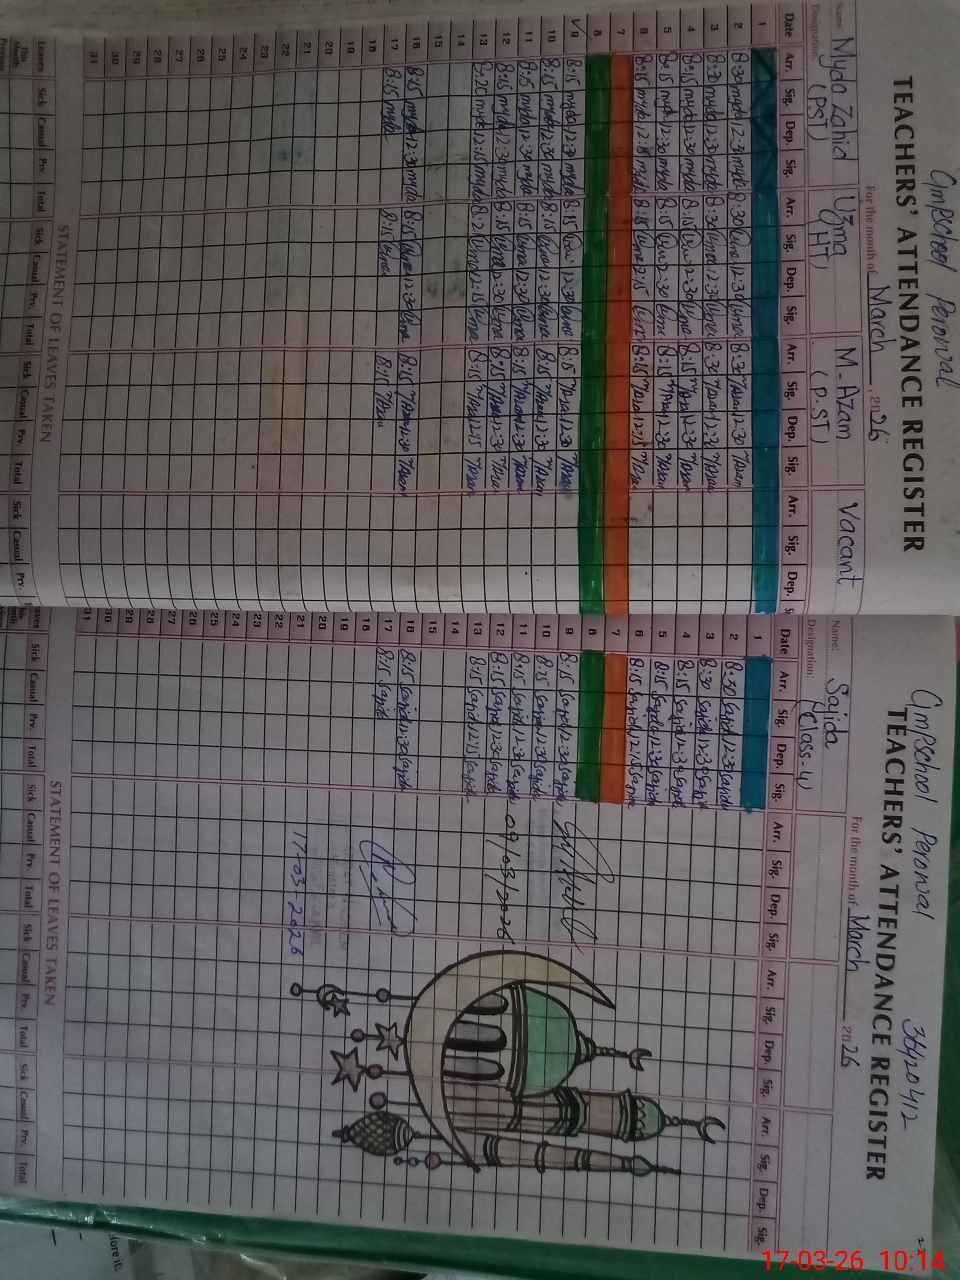 GMPSchool Perowal
TEACHERS' ATTENDANCE REGISTER
For the month of March, 2026
Name: Myda Zahid Uzma M-Azam Vacant
Designation: (PST) (HT) (P.ST)
Date Arr. Sig. Dep. Sig. Arr. Sig. Dep. Sig. Arr. Sig. Dep. Sig. Arr. Sig. Dep. S
1
2 8:30 myda 12:30 myda 8:30 Uzma 12:30 Uzma 8:30 MAzam 12:30 MAzam
3 8:30 myda 12:30 myda 8:30 Uzma 12:30 Uzma 8:30 MAzam 12:30 MAzam
4 8:15 myda 12:30 myda 8:15 Uzma 12:30 Uzma 8:15 MAzam 12:30 MAzam
5 8:15 myda 12:30 myda 8:15 Uzma 12:30 Uzma 8:15 MAzam 12:30 MAzam
6 8:15 myda 12:15 myda 8:15 Uzma 12:15 Uzma 8:15 MAzam 12:15 MAzam
7
8
9 8:15 myda 12:30 myda 8:15 Uzma 12:30 Uzma 8:15 MAzam 12:30 MAzam
10 8:15 myda 12:30 myda 8:15 Uzma 12:30 Uzma 8:15 MAzam 12:30 MAzam
11 8:15 myda 12:30 myda 8:15 Uzma 12:30 Uzma 8:15 MAzam 12:30 MAzam
12 8:15 myda 12:30 myda 8:15 Uzma 12:30 Uzma 8:15 MAzam 12:30 MAzam
13 myda 12:15 myda Uzma 12:15 Uzma 8:15 MAzam 12:15 MAzam
14
15
16 8:15 myda 12:30 myda 8:15 Uzma 12:30 Uzma 8:15 MAzam 12:30 MAzam
17 8:15 myda 8:15 Uzma 8:15 MAzam
18
19
20
21
22
23
24
25
26
27
28
29
30
31
STATEMENT OF LEAVES TAKEN
Leaves Sick Casual Prv. Total Sick Casual Prv. Total Sick Casual Prv. Total Sick Casual Prv.
This Month
Previous
GMPSchool Perowal 36420412
TEACHERS' ATTENDANCE REGISTER
For the month of March 2026
Name: Sajida
Designation: (Class-4)
Date Arr. Sig. Dep. Sig. Arr. Sig. Dep. Sig. Arr. Sig. Dep. Sig. Arr. Sig. Dep. Sig.
1
2 8:30 Sajida 12:30 Sajida
3 8:30 Sajida 12:30 Sajida
4 8:15 Sajida 12:30 Sajida
5 8:15 Sajida 12:30 Sajida
6 8:15 Sajida 12:15 Sajida
7
8
9 8:15 Sajida 12:30 Sajida
10 8:15 Sajida 12:30 Sajida
11 8:15 Sajida 12:30 Sajida
12 8:15 Sajida 12:30 Sajida 09/03/2026
13 8:15 Sajida 12:15 Sajida
14
15
16 8:15 Sajida 12:30 Sajida
17 8:15 Sajida
18
19
20
21 17-03-2026
22
23
24
25
26
27
28
29
30
31
STATEMENT OF LEAVES TAKEN
Sick Casual Prv. Total Sick Casual Prv. Total Sick Casual Prv. Total Sick Casual Prv. Total
17-03-26 10:14